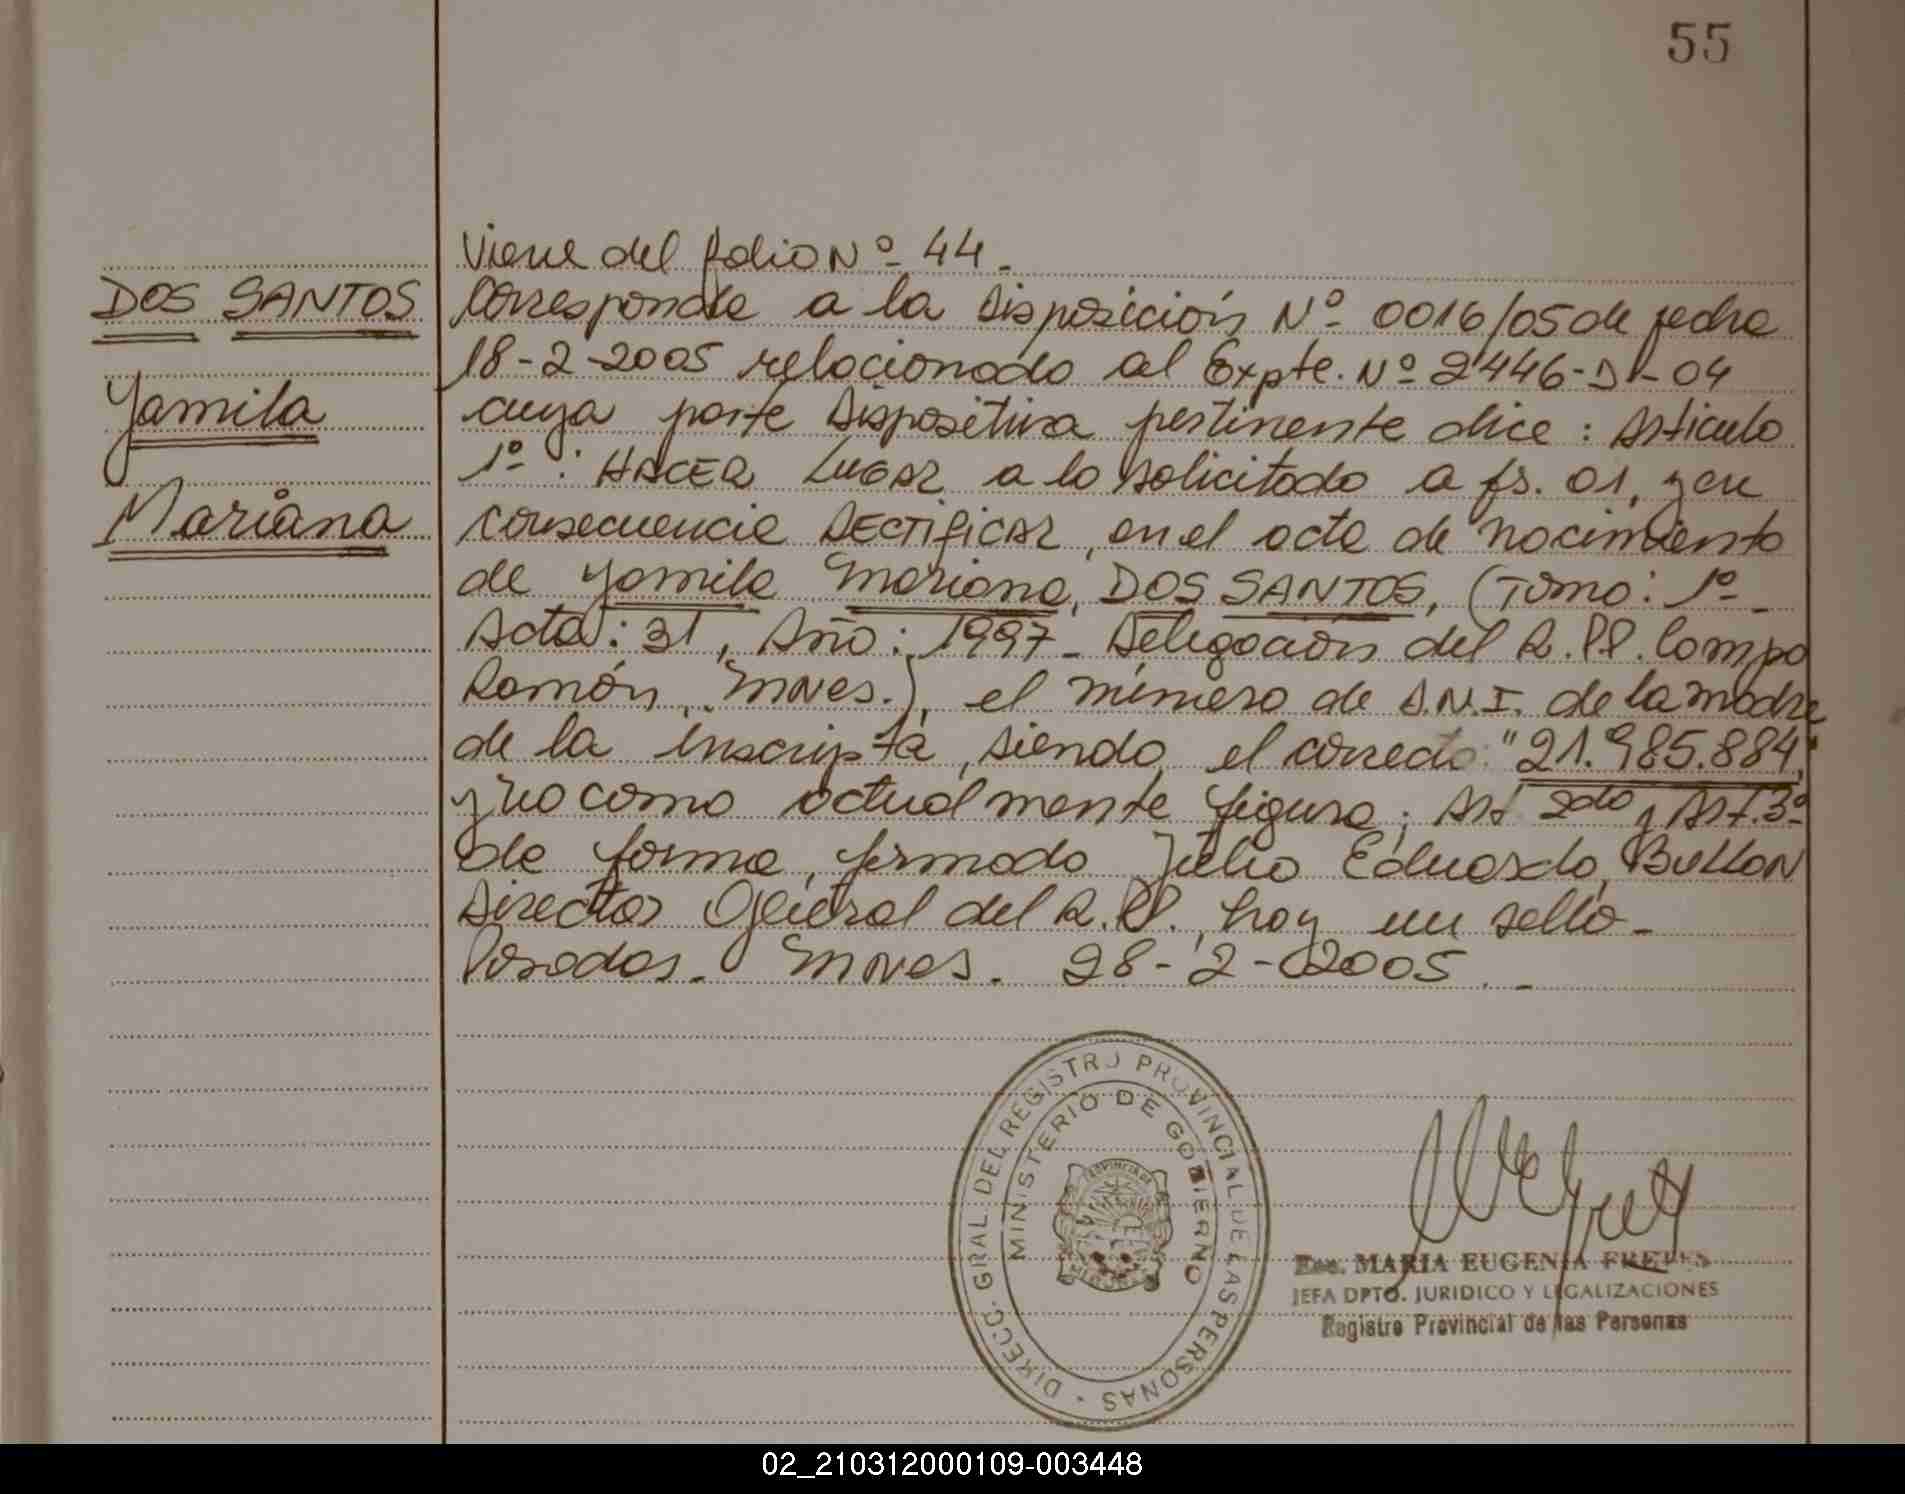 55
DOS SANTOS
Yamila
Mariana
Viene del folio Nº 44.
Corresponde a la Disposición Nº 0016/05 de fecha
18-2-2005 relacionado al Expte. Nº 2446-D-04
cuya parte Dispositiva pertinente dice: Articulo
1º: HACER LUGAR a lo solicitado a fs. 01, y en
consecuencia RECTIFICAR, en el acta de nacimiento
de Yamila Mariana, DOS SANTOS, (Tomo: 1º-
Acta: 31, Año: 1997- Delegación del R.PP. Campo
Ramón, Mnes.), el número de D.N.I. de la madre
de la inscripta, siendo el correcto: "21.985.884,"
y no como actualmente figura; Art 2do y Art.3º
de forma, firmado Julio Eduardo, BULLON
Director General del R.PP., hay un sello-
Posadas. Mnes. 28-2-2005.-
DIRECC. GRAL. DEL REGISTRO PROVINCIAL DE LAS PERSONAS
MINISTERIO DE GOBIERNO
PROVINCIA DE
MISIONES
Esc. MARIA EUGENIA FRETES
JEFA DPTO. JURIDICO Y LEGALIZACIONES
Registro Provincial de las Personas
02_210312000109-003448